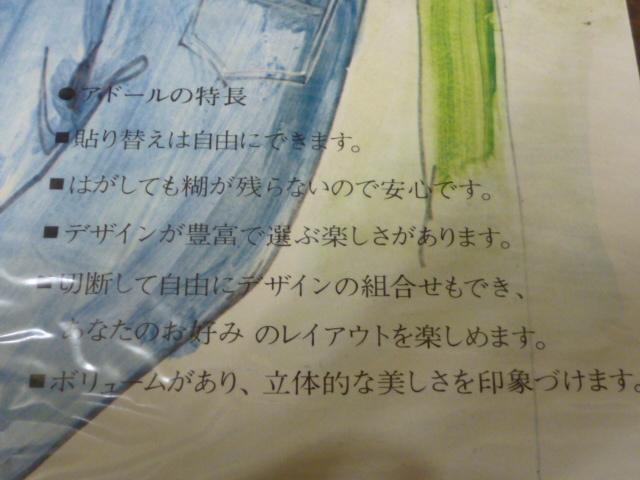 ●アドールの特長
■貼り替えは自由にできます。
■はがしても糊が残らないので安心です。
■デザインが豊富で選ぶ楽しさがあります。
■切断して自由にデザインの組合せもでき、
あなたのお好みのレイアウトを楽しめます。
■ボリュームがあり、立体的な美しさを印象づけます。